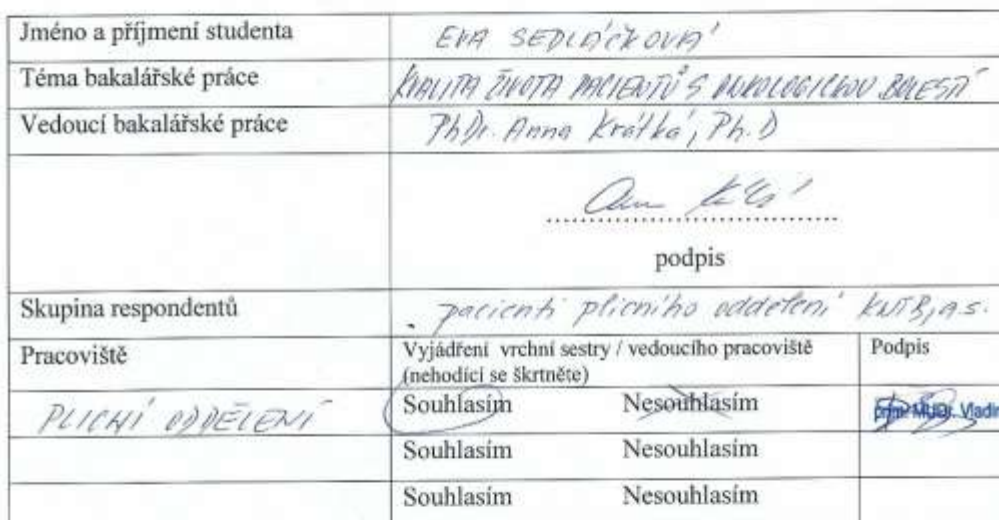 Jméno a příjmení studenta EVA SEDLÁČKOVÁ
Téma bakalářské práce KVALITA ŽIVOTA PACIENTŮ S ONKOLOGICKOU BOLESTÍ
Vedoucí bakalářské práce PhDr. Anna Krátká, Ph.D
podpis
Skupina respondentů pacienti plicního oddělení KNTB, a.s.
Pracoviště Vyjádření vrchní sestry / vedoucího pracoviště Podpis
(nehodící se škrtněte)
PLICNÍ ODDĚLENÍ Souhlasím Nesouhlasím prim. MUDr. Vladim
Souhlasím Nesouhlasím
Souhlasím Nesouhlasím